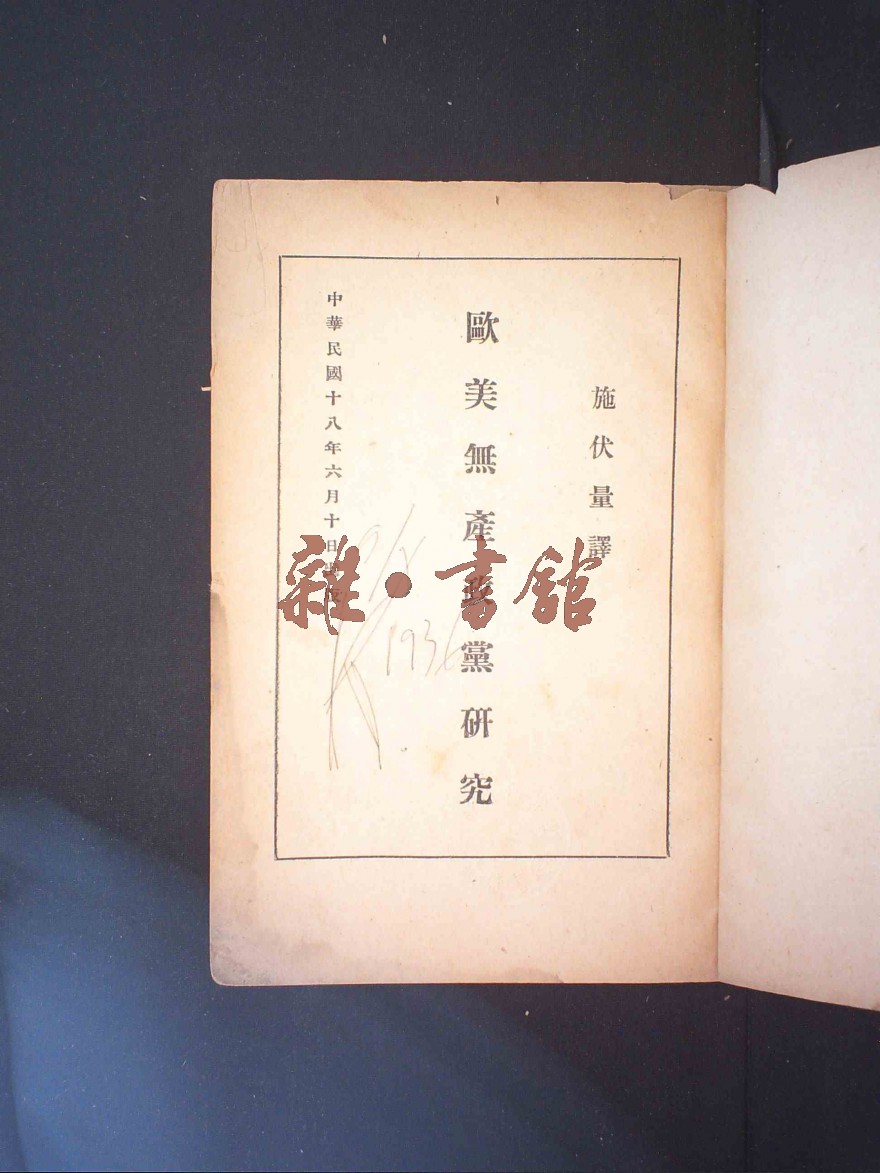 施伏量譯
歐美無產政黨研究
中華民國十八年六月十日
雜·書館
1936